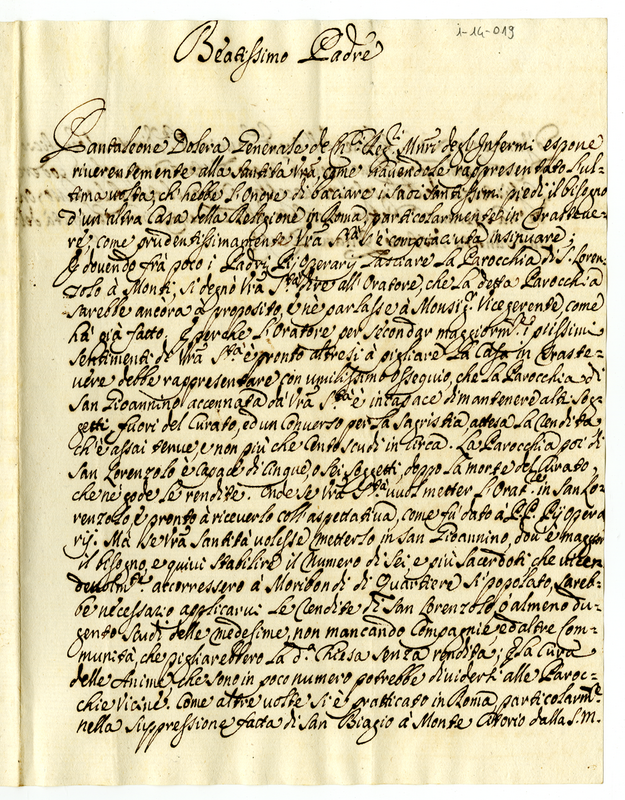 1-14-019
Beatissimo Padre
Pantaleone Dolera Generale de Ch.ci Reg.ri Min.ri degl'Infermi espone
riverentemente alla Santità Vrã, come havendole rappresentato l'ul-
tima volta, ch'hebbe l'onore di baciare i suoi Santissimi piedi il bisogno
d'un'altra Casa della Religione in Roma, particolarmente in Trasteve-
re, come prudentissimamente Vrã S.tà s'è compiaciuta insinuare;
E dovendo frà poco i Padri Pij Operarij lasciare la Parochia di S. Loren-
zolo à Monti, si degnò Vrã S.tà dire all'Oratore, che la detta Parochia
sarebbe ancòra à proposito, e nè parlasse à Monsig.r Vicegerente, come
hà già fatto. E perche l'Oratore per secondar maggiorm.te i piissimi
sentimenti di Vrã S.tà è pronto altresì à pigliare la Casa in Traste-
vere debbe rappresentare con umilissimo ossequio, che la Parochia di
San Gioannino accennata dà Vrã S.tà è incapace di mantenere altri Sog-
getti, fuori del Curato, ed un Converso per la Sagristia attesa la rendita
ch'è assai tenue, e non più che Cento scudi in circa. La Parochia poi di
San Lorenzolo è capace di Cinque, o sei Soggetti, doppo la morte del Curato,
che nè gode le rendite. Onde se Vrã S.tà vuol metter l'Orat.re in San Lo-
renzolo è pronto à riceverlo coll'aspettativa, come fù dato à P.P. Pij Opera
rij. Mà se Vrã Santità volesse metterlo in San Gioannino, dov'è maggior
il bisogno, e quivi stabilire il numero di Sei, e più Sacerdoti che
accorressero à Moribondi di Quartiere sì popolato, sareb-
be necessario applicarvi le rendite di San Lorenzolo, ò almeno du-
gento scudi delle medesime, non mancando Compagnie ed altre Com-
munità, che pigliarebbero la d.a Chiesa senza rendita; E la Cura
delle Anime, che sono in poco numero potrebbe dividersi alle Paroc-
chie vicine. Come altre volte si è pratticato in Roma, particolarm.te
nella suppressione fatta di San Biagio à Monte Citorio dalla S.M.